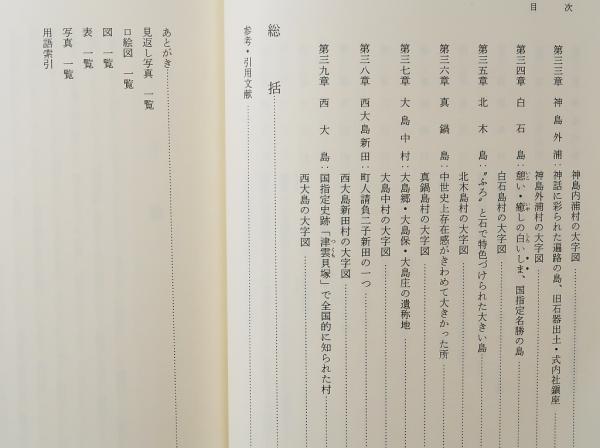 目次
神島内浦村の大字図
第三三章 神島外浦：神話に彩られた遍路の島、旧石器出土・式内社鎮座
神島外浦村の大字図
第三四章 白石島：憩い・癒しの白いしま、国指定名勝の島
白石島村の大字図
第三五章 北木島：〝ふろ〟と石で特色づけられた大きい島
北木島村の大字図
第三六章 真鍋島：中世史上存在感がきわめて大きかった所
真鍋島村の大字図
第三七章 大島中村：大島郷・大島保・大島庄の遺称地
大島中村の大字図
第三八章 西大島新田：町人請負二子新田の一つ
西大島新田村の大字図
第三九章 西大島：国指定史跡「津雲貝塚」で全国的に知られた村
西大島の大字図
総括
参考・引用文献
あとがき
見返し写真一覧
口絵図一覧
図一覧
表一覧
写真一覧
用語索引